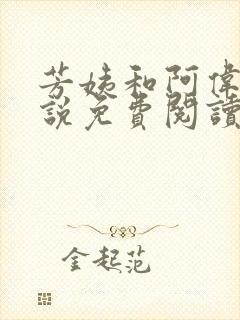 芳姨和阿偉
說免費閱讀
金起范